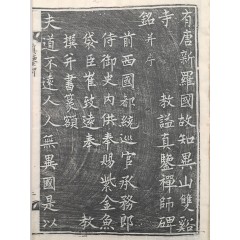 有唐新羅國故知異山雙谿
寺教諡真鑒禪師碑
銘并序
前西國都統巡官承務郎
侍御史內供奉賜紫金魚
袋臣崔致遠奉教
撰并書篆額
夫道不遠人人無異國是以